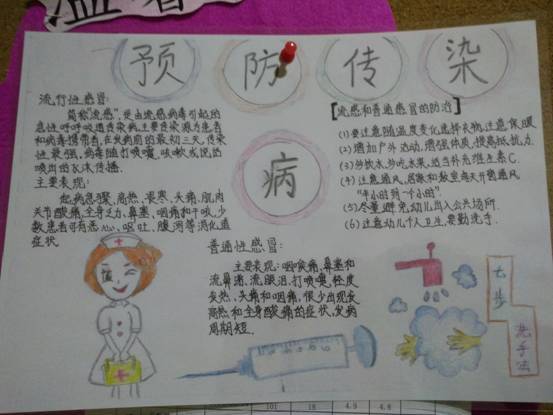 预防传染
病
流行性感冒:
简称"流感",是由流感病毒引起的
急性呼吸道传染病,主要传染源为患者
和病毒携带者,在发病前的最初三天,传染
性最强,病毒随打喷嚏、咳嗽或说话
喷出的飞沫传播.
主要表现:
起病急骤、高热、畏寒、头痛、肌肉
关节酸痛、全身乏力、鼻塞、咽痛和干咳,少
数患者可有恶心、呕吐、腹泻等消化道
症状.
普通性感冒:
主要表现:咽喉痛、鼻塞和
流鼻涕、流眼泪、打喷嚏、轻度
发热、头痛和咽痛,很少出现长
高热和全身酸痛的症状,发病
周期短.
[流感和普通感冒的防治]
(1)要注意随温度变化选择衣物,注意保暖
(2)增加户外活动,增强体质,提高抵抗力.
(3)多饮水,多吃水果,适当补充维生素C.
(4)注意通风,居室和教室每天开窗通风
"半小时到一个小时"
(5)尽量避免幼儿出入公共场所
(6)注意幼儿个人卫生,要勤洗手.
七步
洗手法
101 18 4.9 4.8